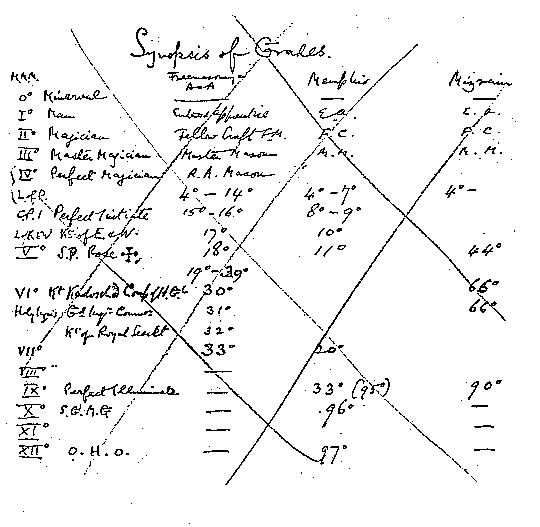 Synopsis of Grades.
Freemasonry Memphis Mizraim
M∴M∴M∴ A∴A
0° Minerval — — —
I° Man Entered Apprentice E.A. E.A.
II° Magician Fellow Craft F.M. F.C. F.C.
III° Master Magician Master Mason M.M. M.M.
IV° Perfect Magician R.A. Mason
4°–14° 4°–7° 4°–
Perfect Initiate 15°–16° 8°–9°
Kt of E. & W. 17° 10°
V° S.P. Rose 18° 11° 44°
19°–29°
VI° Kt Kadosch 30° 66°
31° 66°
Kt of Royal Secret 32°
VII° 33° 20°
VIII° —
IX° Perfect Illuminate — 33° (95°) 90°
X° S.G.M.G — 96° —
XI° — —
XII° O.H.O. — 97° —